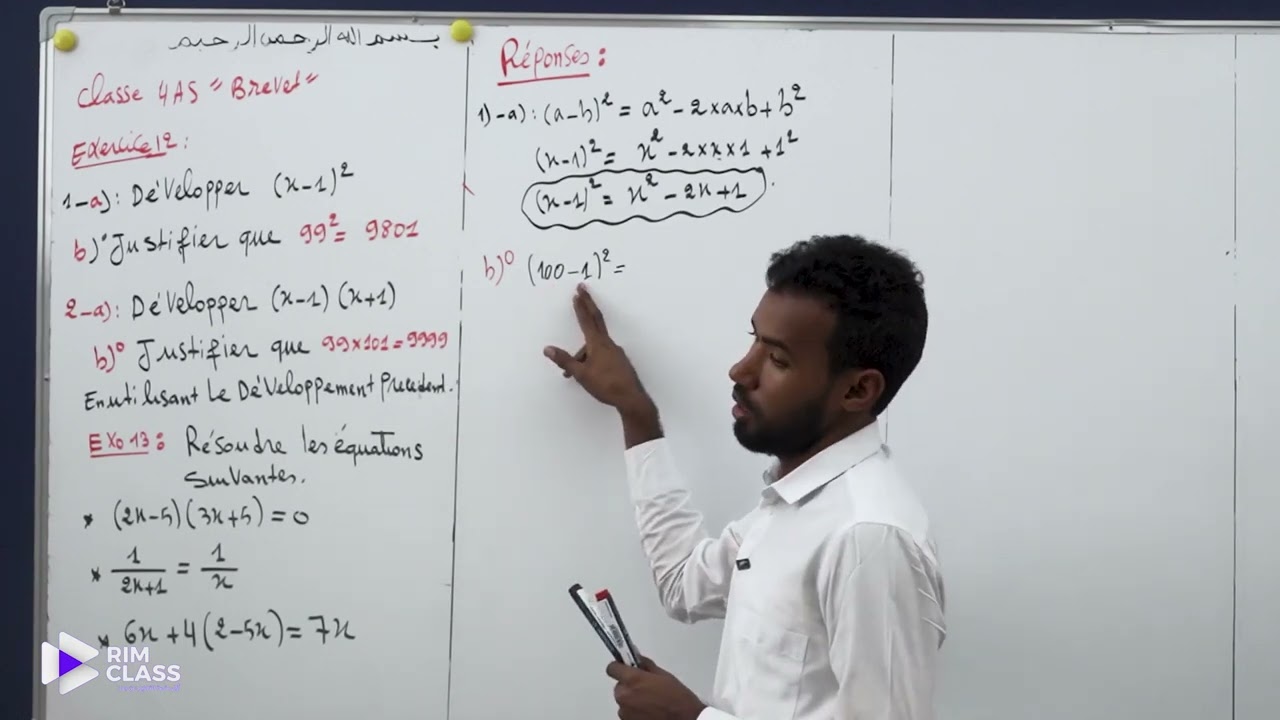 بسم الله الرحمن الرحيم
Classe 4AS "Brevet"
Exercice 12:
1-a): Dévélopper (x-1)²
b)° Justifier que 99² = 9801
2-a): Dévélopper (x-1)(x+1)
b)° Justifier que 99×101=9999
En utilisant Le Dévéloppement Précédent.
EXO 13: Résoudre les équations
suivantes.
* (2x-5)(3x+5)=0
* 1/(2x+1) = 1/x
* 6x+4(2-5x)=7x
Réponses:
1)-a): (a-b)² = a²-2×a×b+b²
(x-1)² = x²-2×x×1+1²
(x-1)² = x²-2x+1.
b)° (100-1)² =
RIM
CLASS